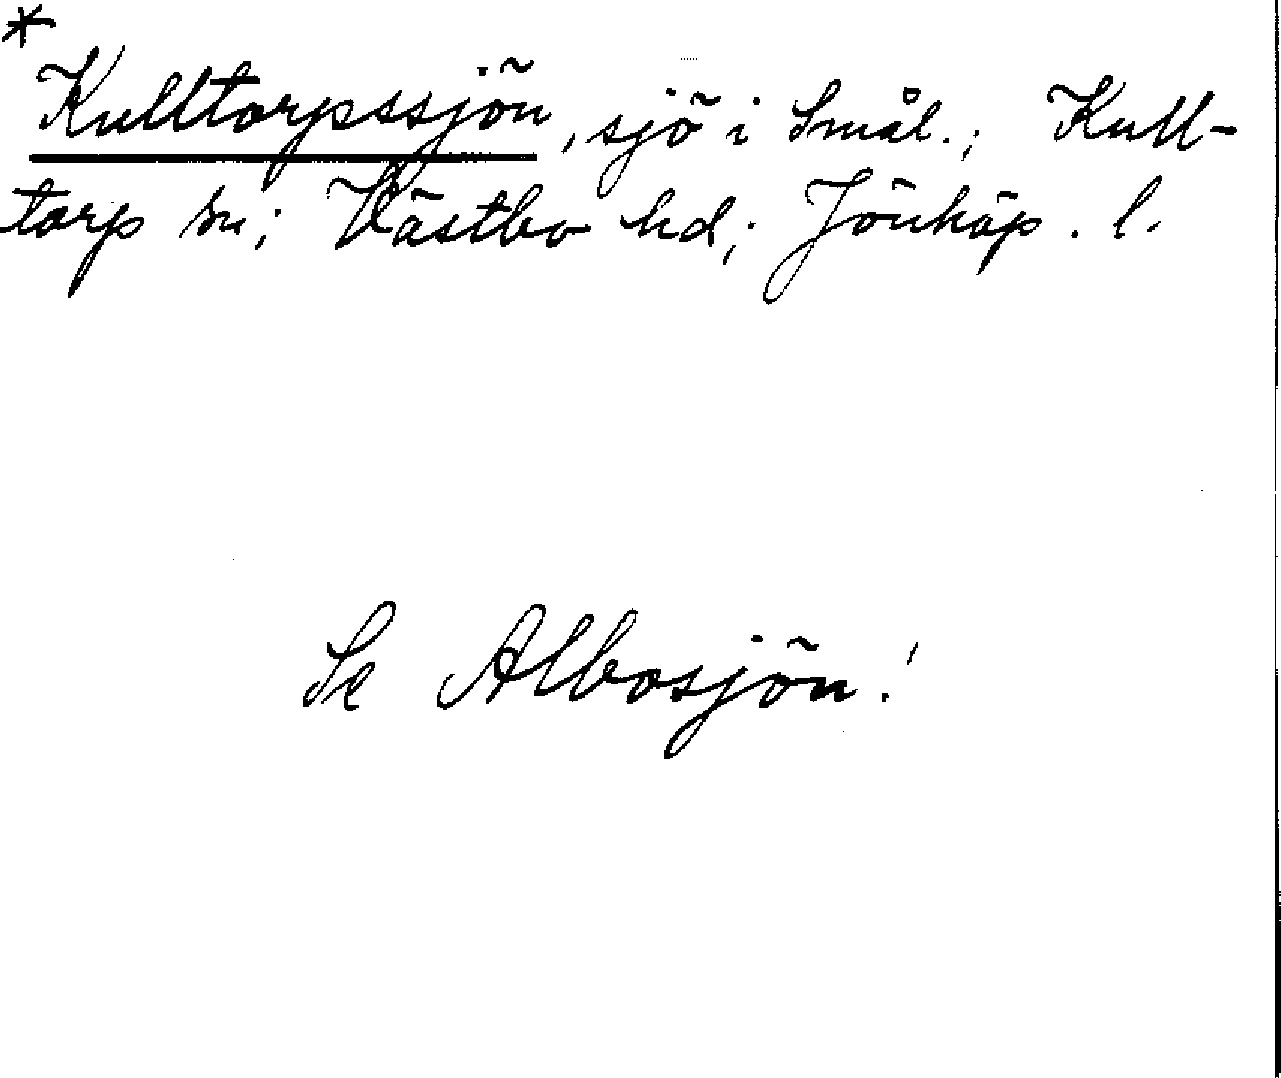 *
Kulltorpssjön, sjö i Smål.; Kull-
torp sn; Västbo hd; Jönköp. l.
Se Albosjön!